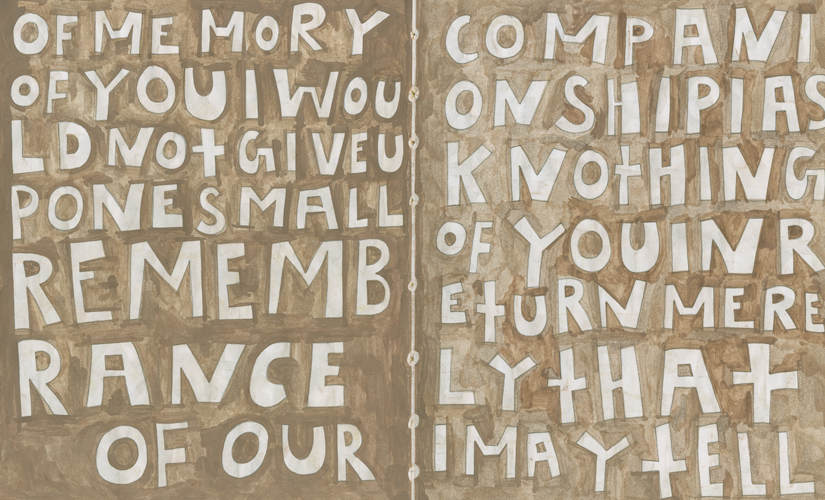 OF ME MORY
OF YOU I WOU
LD NOt GIVE U
P ONE SMALL
REMEMB
RANCE
OF OUR
COMPANI
ONSHIP I AS
K NOtHING
OF YOU IN R
EtURN MERE
LY tHAt
I MAY tELL